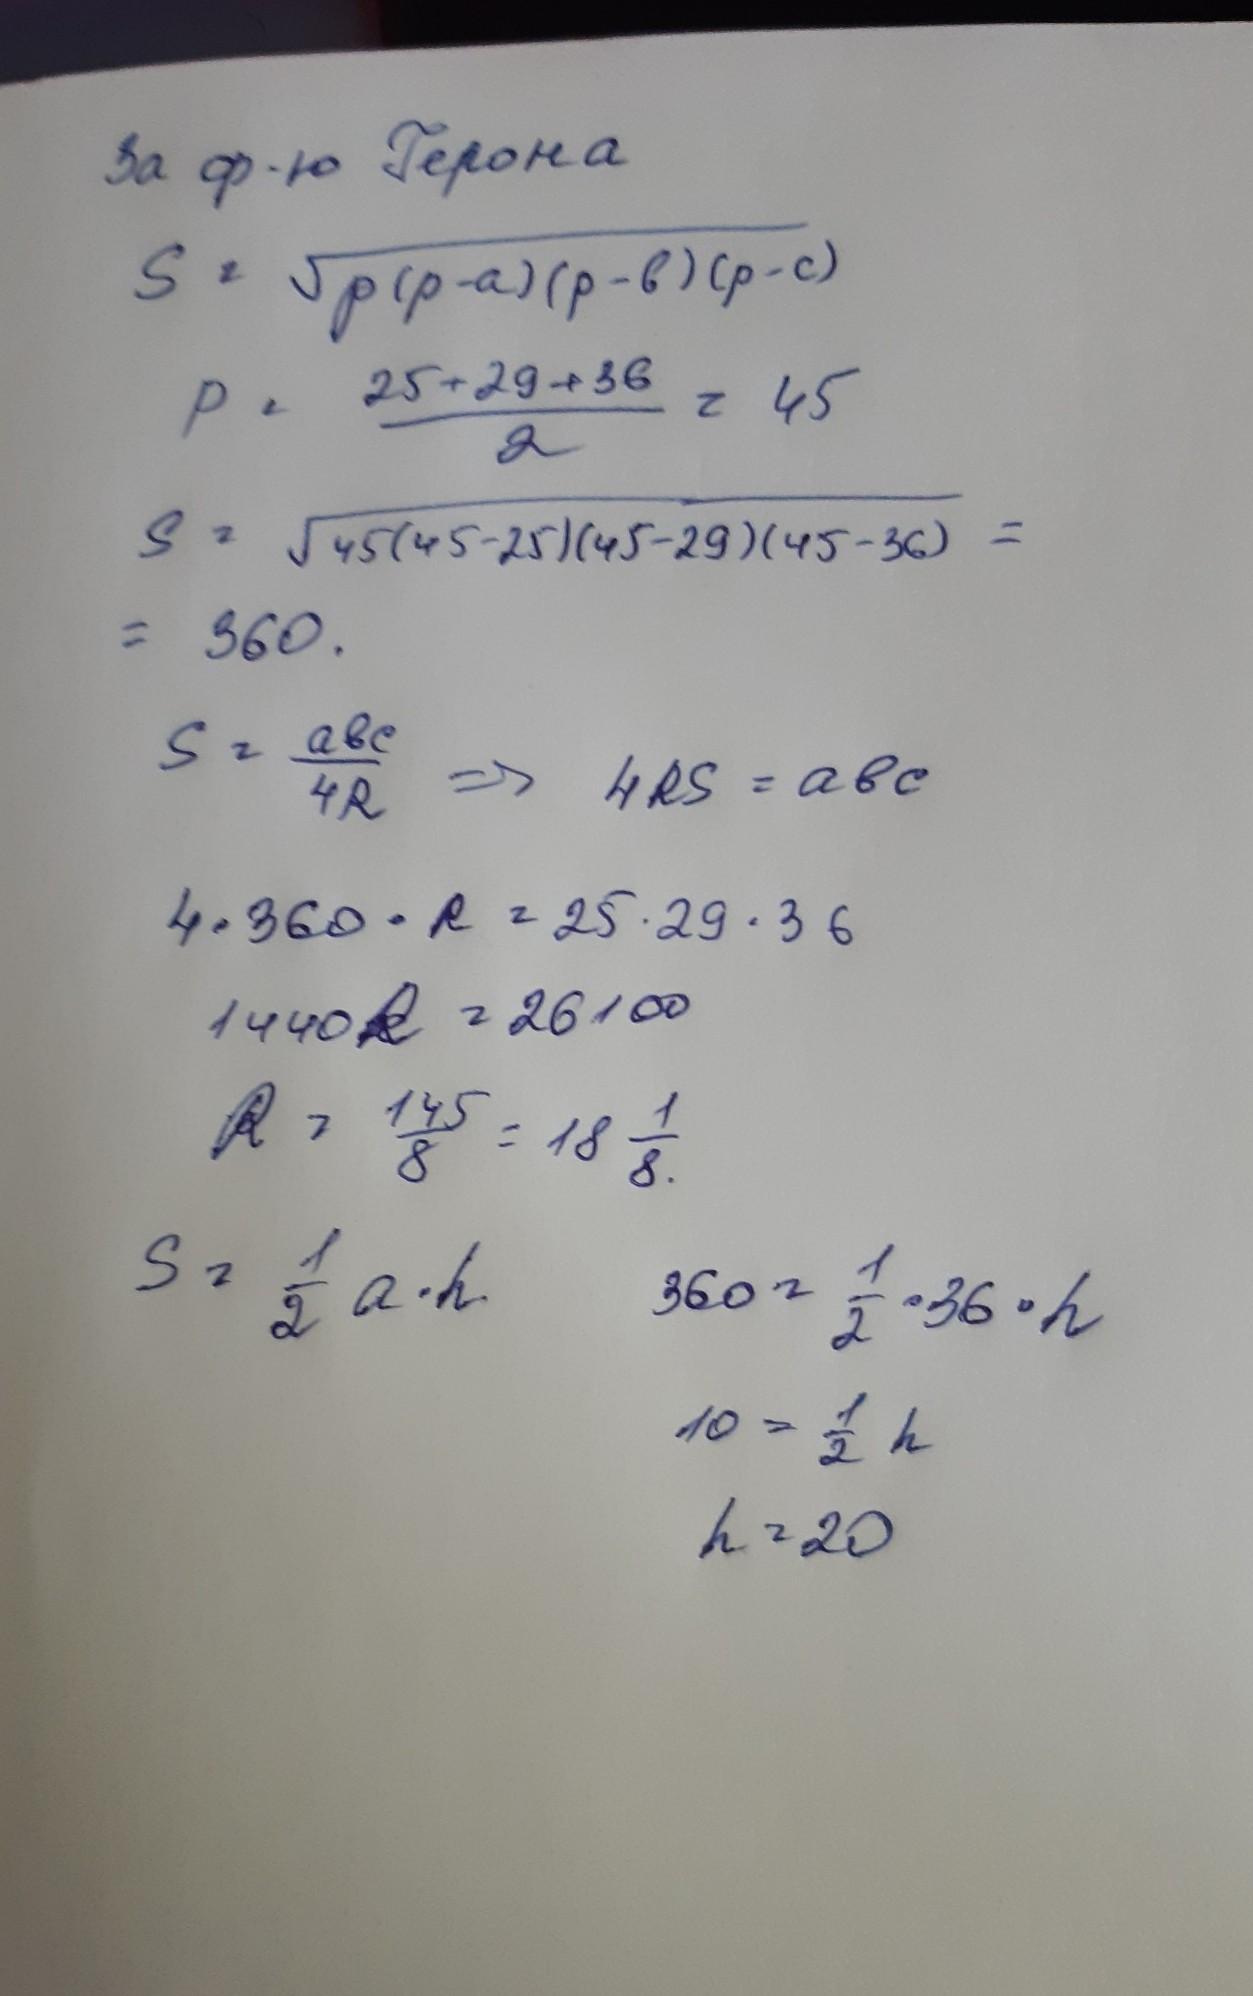 За ф-ю Герона
S = √p(p-a)(p-b)(p-c)
P = (25+29+36)/2 = 45
S = √45(45-25)(45-29)(45-36) =
= 360.
S = abc/4R => 4RS = abc
4·360·R = 25·29·36
1440R = 26100
R = 145/8 = 18 1/8.
S = 1/2 a·h. 360 = 1/2·36·h
10 = 1/2 h
h = 20